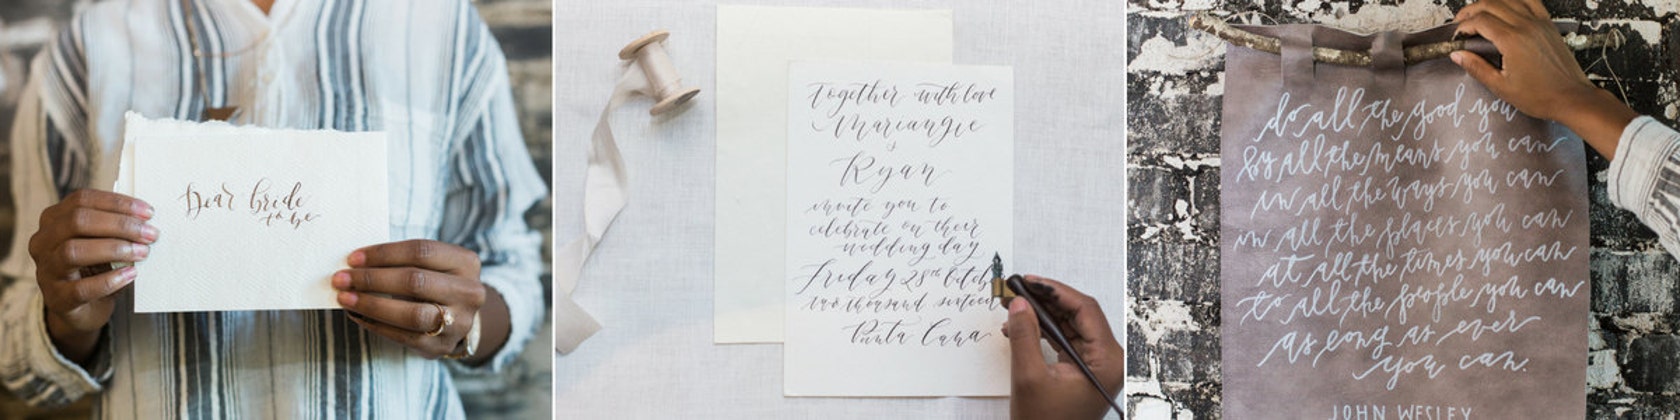 Dear bride
to be
together with love
Mariangie
&
Ryan
invite you to
celebrate on their
wedding day
Friday 28th Octob
two thousand sixteen
Punta Cana
do all the good you
by all the means you can
in all the ways you can
in all the places you can
at all the times you can
to all the people you can
as long as ever
you can.
JOHN WESLEY